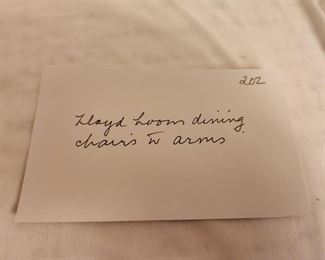 202
Lloyd Loom dining
chairs w arms